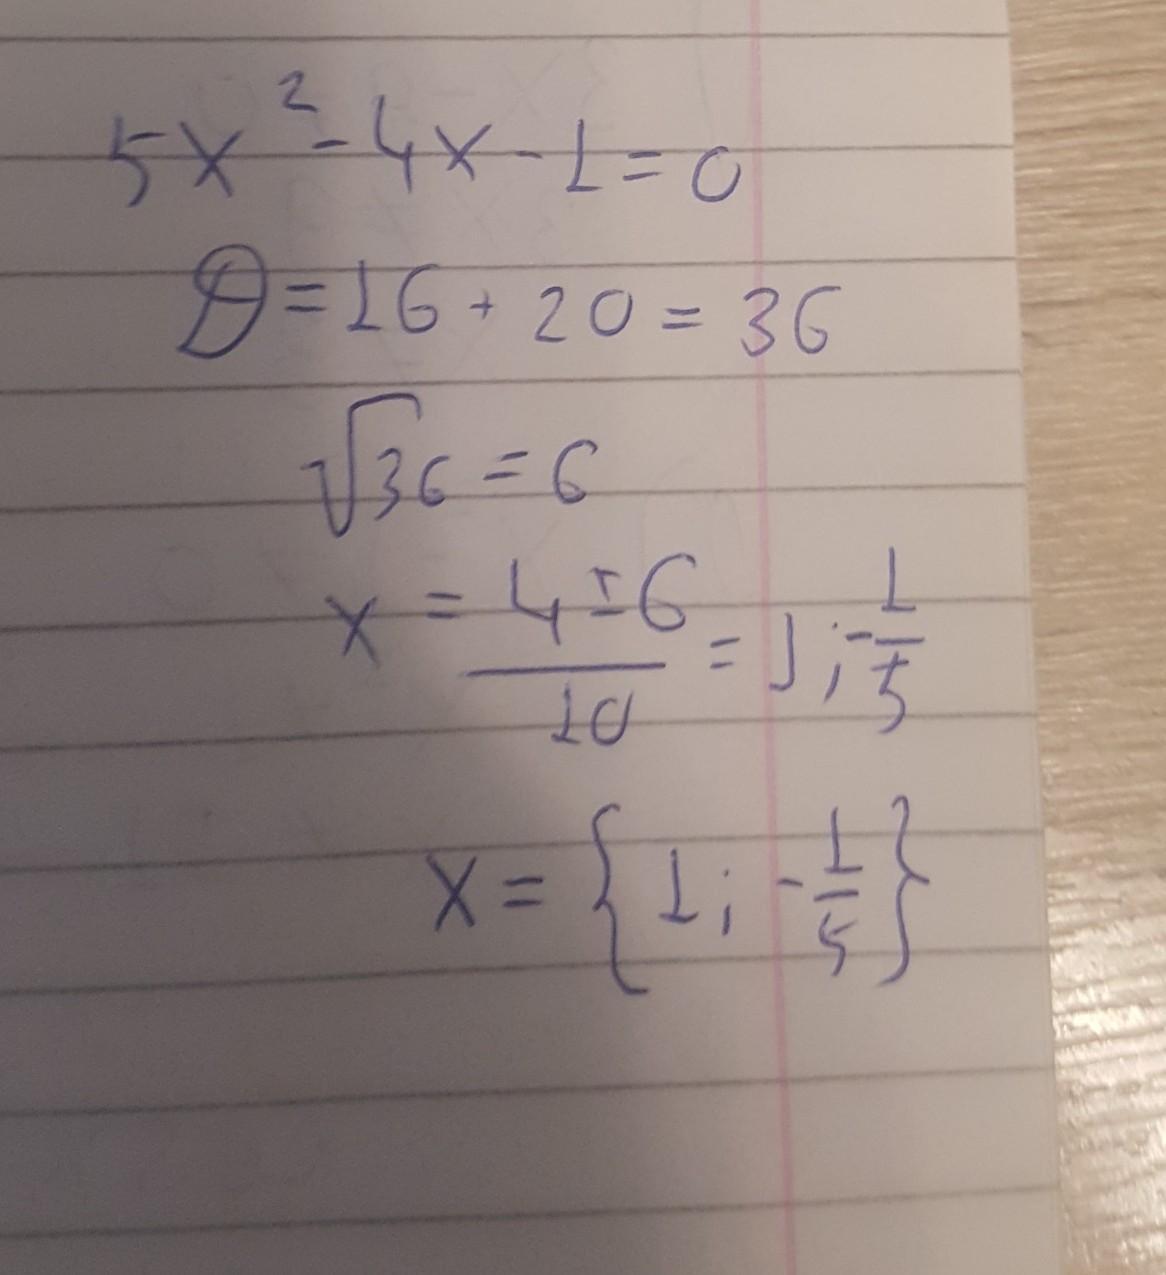 5x² - 4x - 1 = 0
D = 16 + 20 = 36
√36 = 6
x = (4 ± 6)/10 = 1 ; -1/5
x = {1 ; -1/5}